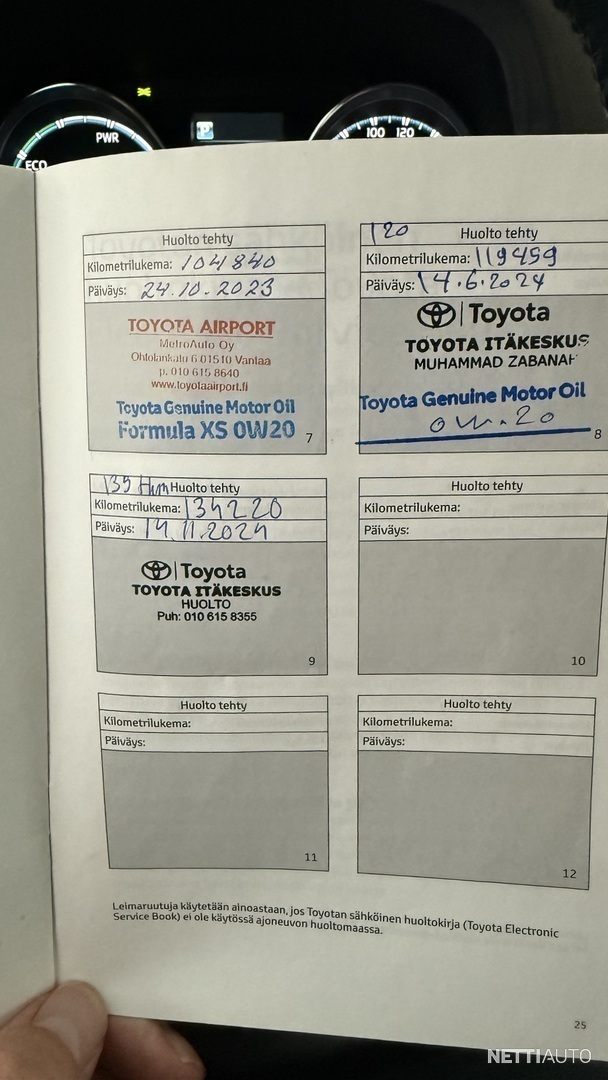 PWR
ECO
P
100 120
Huolto tehty
Kilometrilukema: 104840
Päiväys: 24.10.2023
TOYOTA AIRPORT
MetroAuto Oy
Ohtolankatu 6 01510 Vantaa
p. 010 615 8640
www.toyotaairport.fi
Toyota Genuine Motor Oil
Formula XS 0W20
7
120 Huolto tehty
Kilometrilukema: 119459
Päiväys: 14.6.2024
Toyota
TOYOTA ITÄKESKUS
MUHAMMAD ZABANAH
Toyota Genuine Motor Oil
0W.20
8
135 tkm Huolto tehty
Kilometrilukema: 134220
Päiväys: 14.11.2024
Toyota
TOYOTA ITÄKESKUS
HUOLTO
Puh: 010 615 8355
9
Huolto tehty
Kilometrilukema:
Päiväys:
10
Huolto tehty
Kilometrilukema:
Päiväys:
11
Huolto tehty
Kilometrilukema:
Päiväys:
12
Leimaruutuja käytetään ainoastaan, jos Toyotan sähköinen huoltokirja (Toyota Electronic
Service Book) ei ole käytössä ajoneuvon huoltomaassa.
25
NETTIAUTO